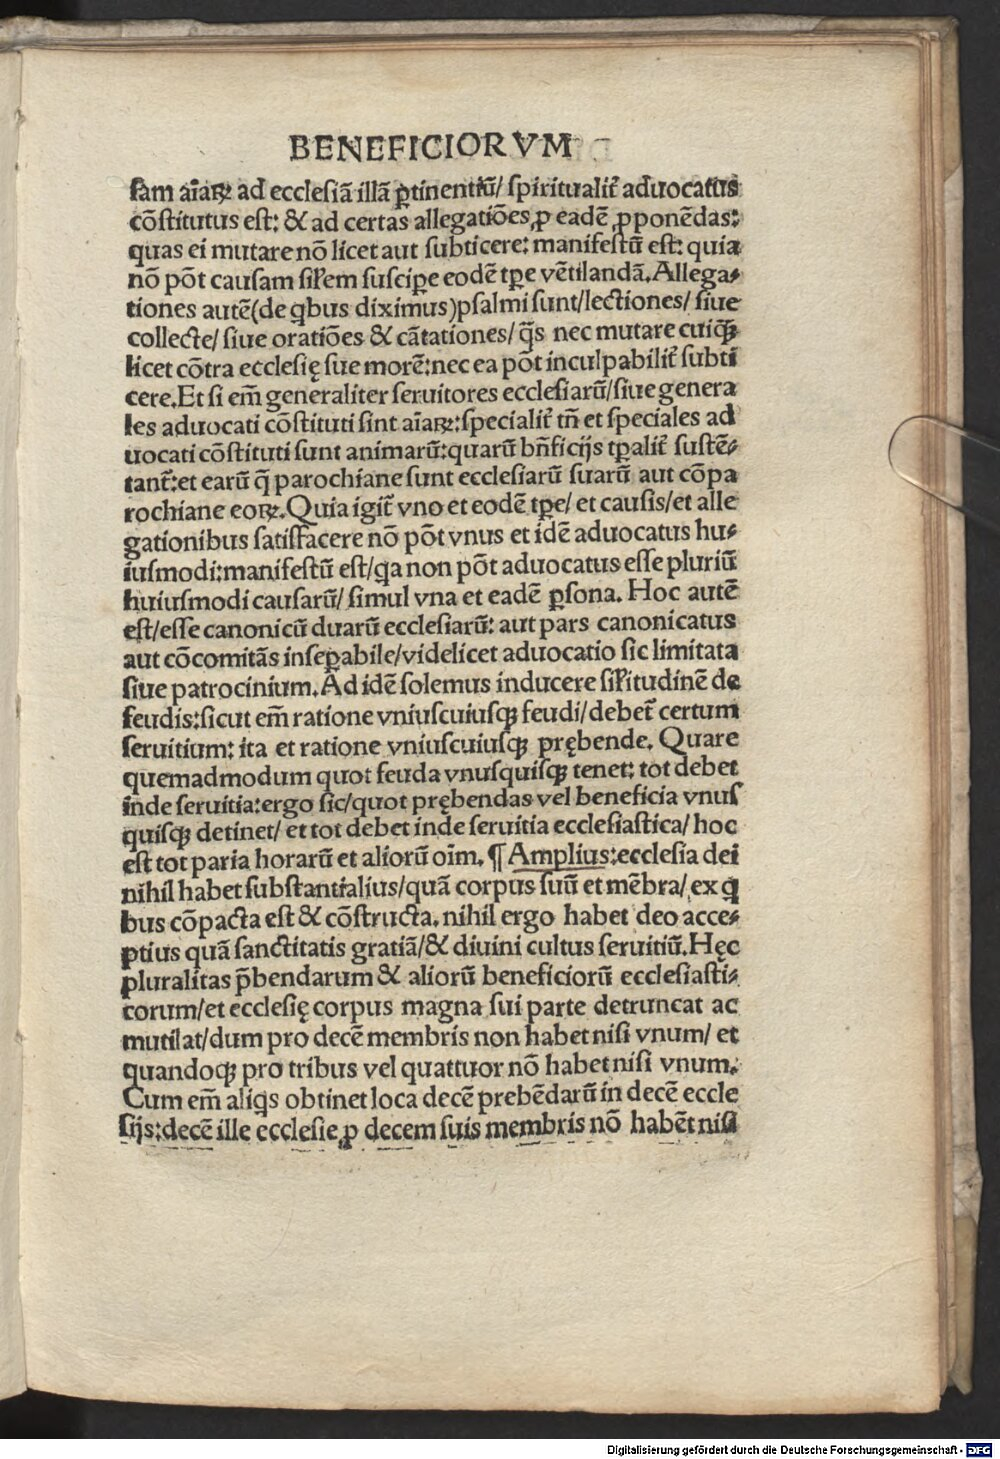 BENEFICIORVM
ſam aīaꝝ ad ecclesiā illā ꝑtinentiū/ ſpiritualit̄ aduocatus
cōſtitutus est: & ad certas allegatiōes ꝓ eadē ꝓponēdas:
quas ei mutare nō licet aut ſubticere: manifeſtū eſt: quia
nō pōt cauſam ſiłem ſuſcipe eodē tꝑe vētilandā. Allega⸗
tiones autē(de qbus diximus)pſalmi ſunt/lectiones/ ſiue
collecte/ ſiue oratiōes & cātationes/ q̄s nec mutare cuiqȝ
licet cōtra eccleſię ſue morē: nec ea pōt inculpabilit̄ ſubti
cere. Et ſi em̄ generaliter ſeruitores eccleſiarū/ſiue genera
les aduocati cōſtituti ſint aīaꝝ: ſpecialit̄ tn̄ et ſpeciales ad
uocati cōſtituti ſunt animarū: quarū bn̄ficijs tꝑalit̄ ſuſtē⸗
tant̄: et earū q̄ parochiane ſunt eccleſiarū ſuarū aut cōpa
rochiane eoꝝ. Quia igit̄ vno et eodē tꝑe/ et cauſis/et alle
gationibus ſatiſfacere nō pōt vnus et idē aduocatus hu⸗
iuſmodi: manifeſtū eſt/qa non pōt aduocatus eſſe pluriū
huiuſmodi cauſarū/ ſimul vna et eadē ꝑſona. Hoc autē
eſt/eſſe canonicū duarū eccleſiarū: aut pars canonicatus
aut cōcomitās inſeꝑabile/videlicet aduocatio ſic limitata
ſiue patrocinium. Ad idē ſolemus inducere ſiłitudinē de
feudis: ſicut em̄ ratione vniuſcuiuſqȝ feudi/debet̄ certum
ſeruitium: ita et ratione vniuſcuiuſqȝ prębende. Quare
quemadmodum quot feuda vnuſquiſqȝ tenet: tot debet
inde ſeruitia: ergo ſic/quot prębendas vel beneficia vnuſ
quiſqȝ detinet/ et tot debet inde ſeruitia eccleſiaſtica/ hoc
eſt tot paria horarū et aliorū oīm. ¶ Amplius: eccleſia dei
nihil habet ſubſtantialius/quā corpus ſuū et mēbra/ ex q
bus cōpacta eſt & cōſtructa. nihil ergo habet deo acce⸗
ptius quā ſanctitatis gratiā/& diuini cultus ſeruitiū. Hęc
pluralitas p̄bendarum & aliorū beneficiorū eccleſiaſti⸗
corum/et eccleſię corpus magna ſui parte detruncat ac
mutilat/dum pro decē membris non habet niſi vnum/ et
quandoqȝ pro tribus vel quattuor nō habet niſi vnum.
Cum em̄ aliqs obtinet loca decē prebēdarū in decē eccle
ſijs: decē ille eccleſie ꝓ decem ſuis membris nō habēt niſi
Digitalisierung gefördert durch die Deutsche Forschungsgemeinschaft - DFG